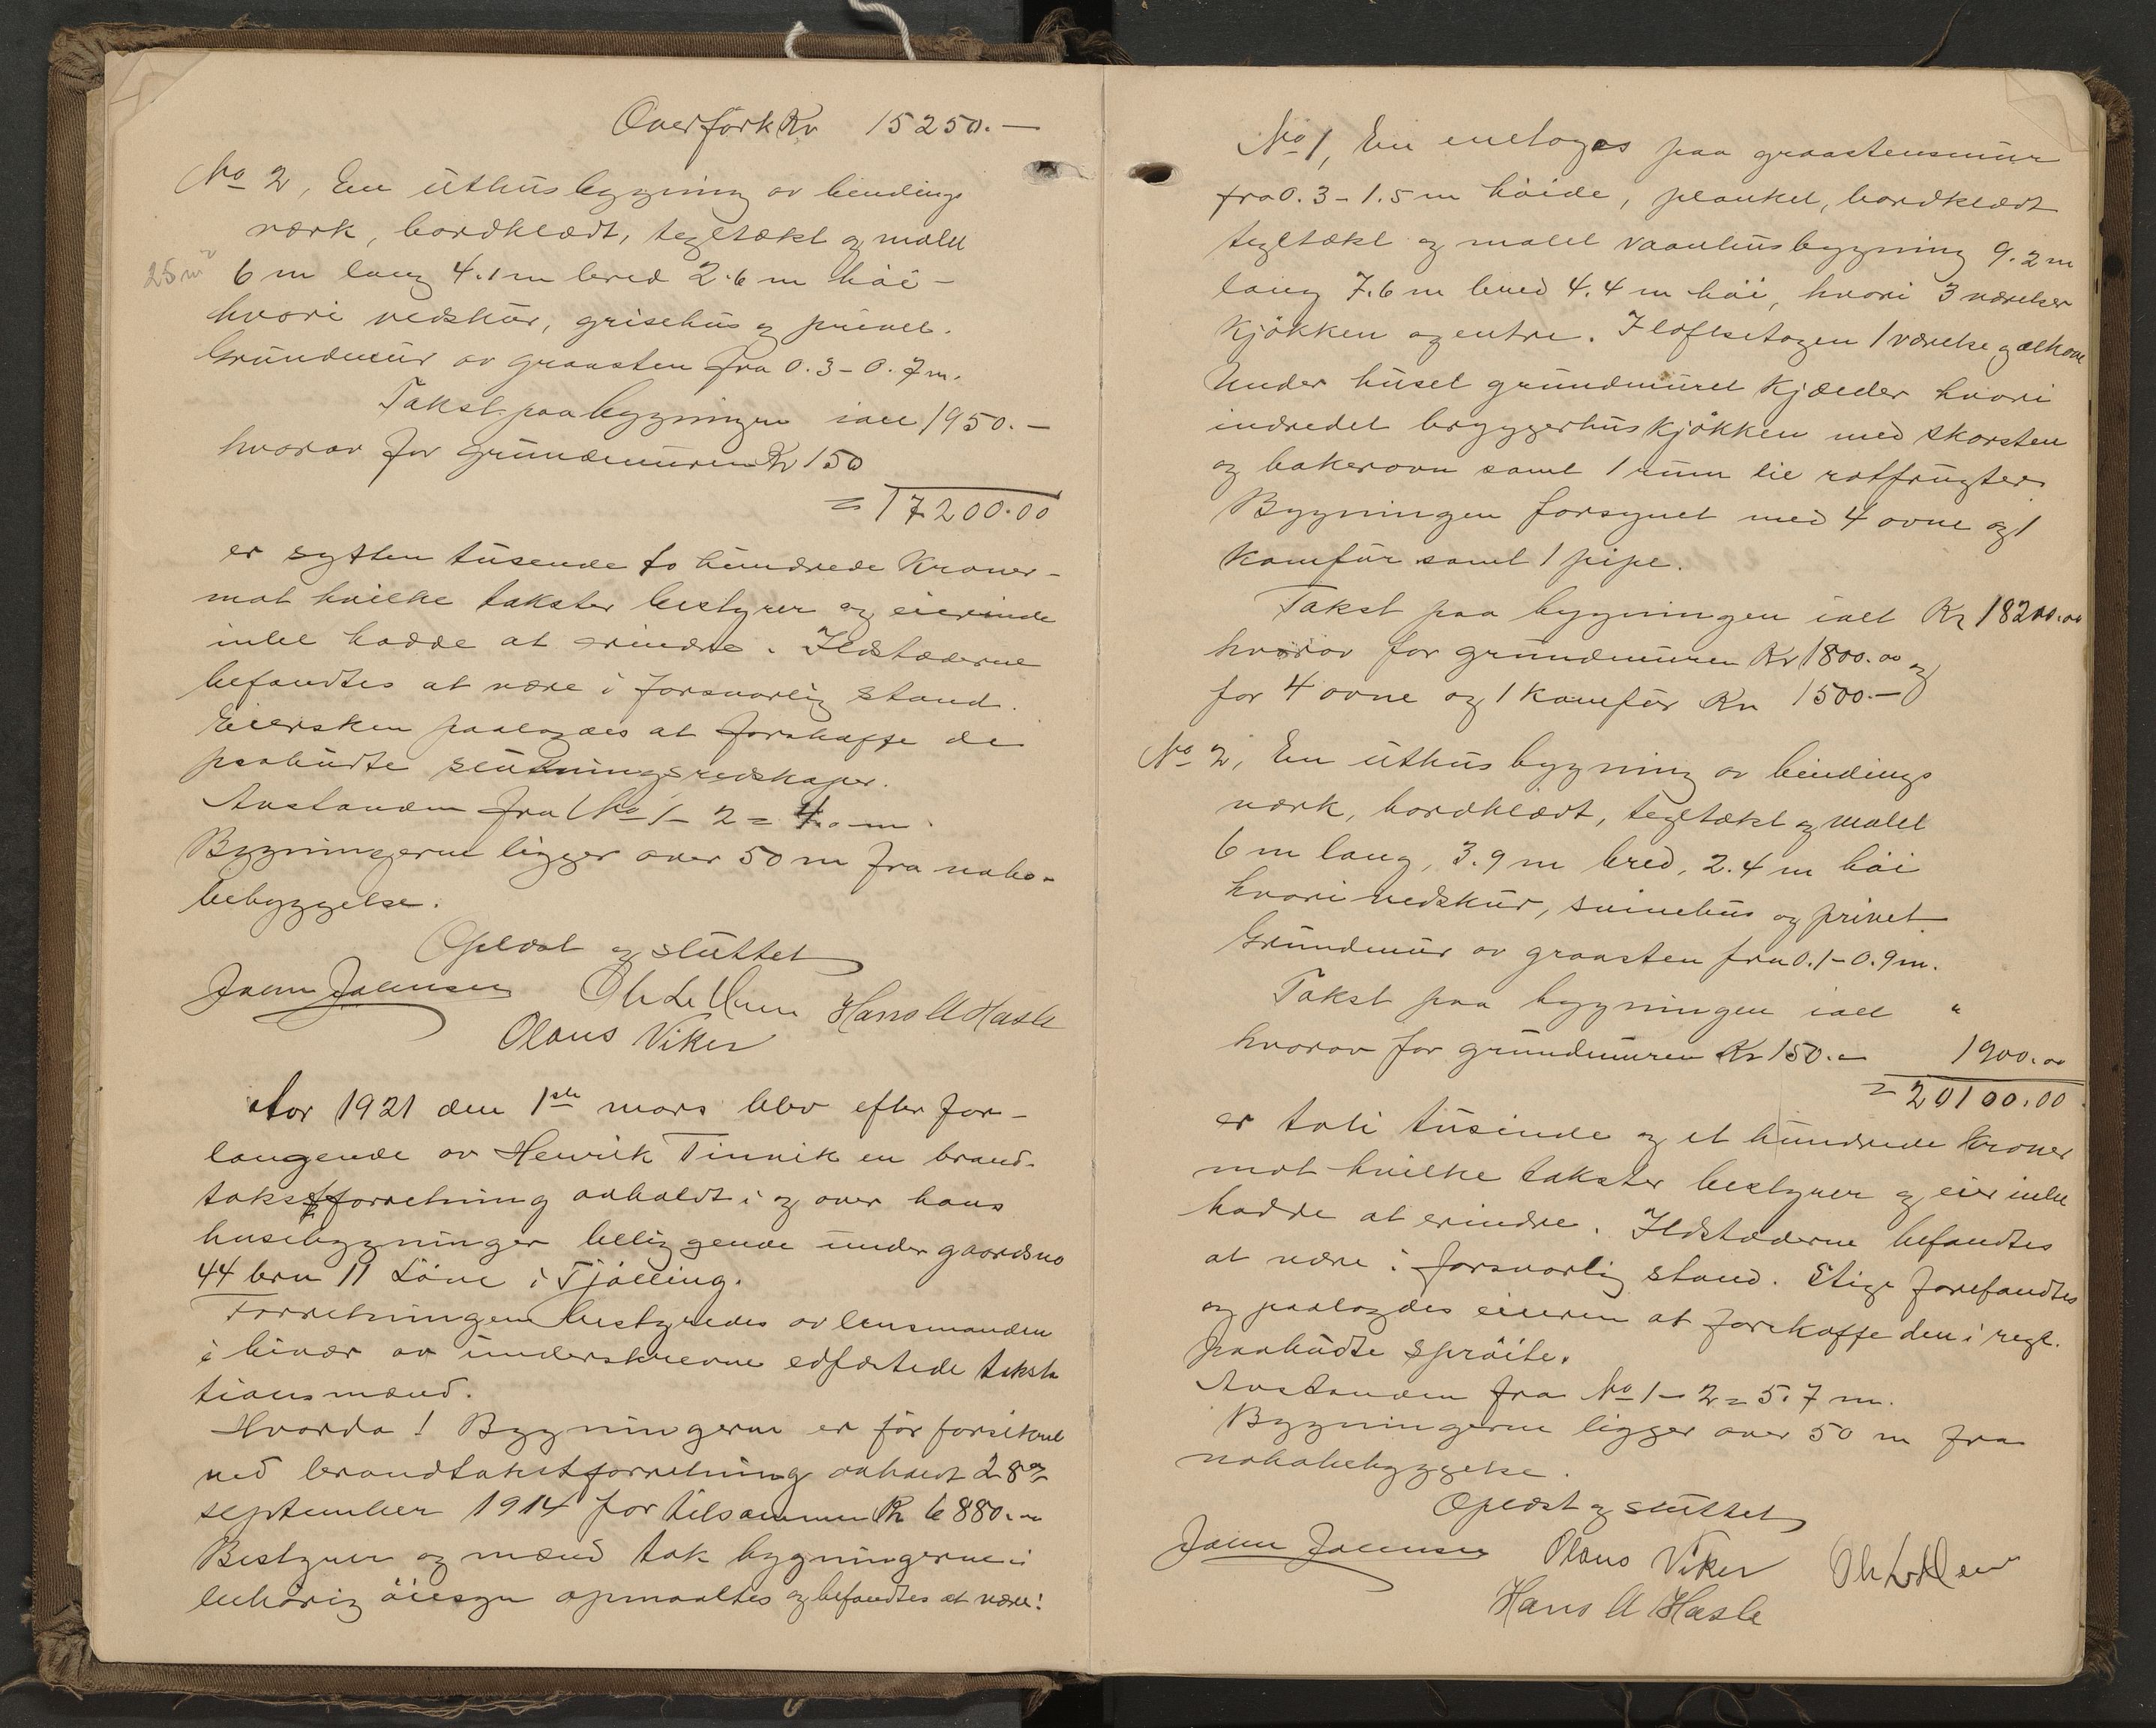 Overført Kr 15250.—
No 2, En uthusbygning av bindings
værk, bordklædt, tegltækt og malet
25 m²
6 m lang 4.1 m bred 2.6 m høi -
hvori vedskur, grisehus og privet.
Grundmur av graasten fra 0.3 - 0.7 m.
Takst paa bygningen ialt 1950.—
hvorav for grundmuren Kr 150
= 17200.00
er sytten tusende to hundrede Kroner -
mot hvilke takster bestyrer og eierinde
intet hadde at erindre. Ildstæderne
befandtes at være i forsvarlig stand.
Eiersken paalagdes at forskaffe de
paabudte slukningsredskaper.
Avstanden fra No 1 - 2 = 4.0 m.
Bygningerne ligger over 50 m fra nabo-
bebyggelse.
Oplæst og sluttet
Hans A Hasle
Olaus Viker
Aar 1921 den 1ste mars blev efter for-
langende av Henrik Tinvik en brand-
takstforretning avholdt i og over hans
husebygninger beliggende under gaardsno
44 brn 11 Løve i Tjølling.
Forretningen bestyredes av lensmanden
i bivær av underskrevne edfæstede taksta
tionsmænd.
Hvorda! Bygningerne er før forsikret
ved brandtakstforretning avholdt 28de
september 1914 for tilsammen Kr 6880.—
Bestyrer og mænd tok bygningerne i
behørig øiesyn opmaaltes og befandtes at være:
No 1, En enetages paa graastensmur
fra 0.3 - 1.5 m høide, planket, bordklædt
tegltækt og malet vaanhusbygning 9.2 m
lang 7.6 m bred 4.4 m høi, hvori 3 værelser
kjøkken og entre. I loftsetagen 1 værelse og alkove
Under huset grundmuret kjælder hvori
indredet bryggerhuskjøkken med skorsten
og bakerovn samt 1 rum til rotfrugter.
Bygningen forsynet med 4 ovne og 1
komfur samt 1 pipe.
Takst paa bygningen ialt Kr 18200.00
hvorav for grundmuren Kr 1800.00 og
for 4 ovne og 1 komfur Kr 1500.—
No 2, En uthusbygning av bindings
værk, bordklædt, tegltækt og malet
6 m lang, 3.9 m bred, 2.4 m høi
hvori vedskur, svinehus og privet.
Grundmur av graasten fra 0.1 - 0.9 m.
Takst paa bygningen ialt "
hvorav for grundmuren Kr 150.— 1900.00
= 20100.00
er toti tusinde og et hundrede kroner
mot hvilke takster bestyrer og eier intet
hadde at erindre. Ildstæderne befandtes
at være i forsvarlig stand. Stige forefandtes
og paalagdes eieren at forskaffe den i regl.
paabudte sprøite.
Avstanden fra No 1 - 2 = 5.7 m.
Bygningerne ligger over 50 m fra
nabobebyggelse.
Oplæst og sluttet
Olaus Viker
Hans A Hasle